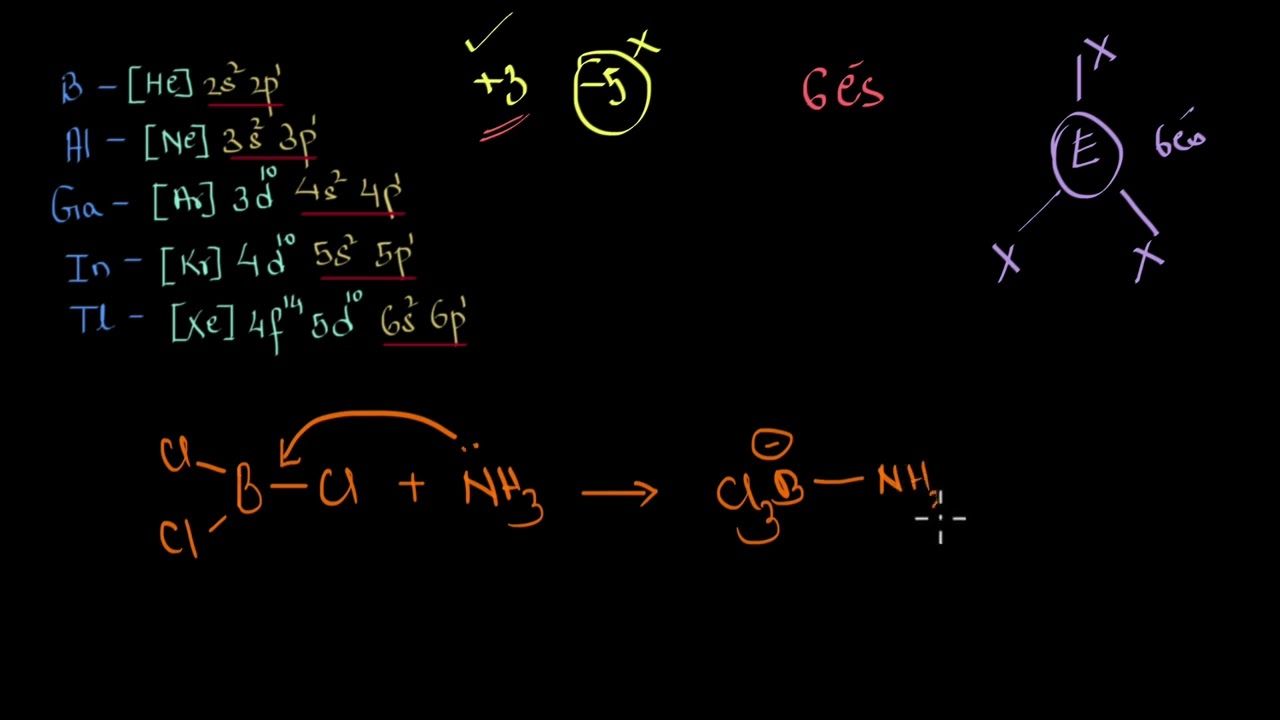 B – [He] 2s² 2p¹
Al – [Ne] 3s² 3p¹
Ga – [Ar] 3d¹⁰ 4s² 4p¹
In – [Kr] 4d¹⁰ 5s² 5p¹
Tl – [Xe] 4f¹⁴ 5d¹⁰ 6s² 6p¹
✓ +3
–5 x
6és
X
E 6és
X X
Cl
B – Cl + N̈H₃ → Cl₃B⊖ — NH₃
Cl